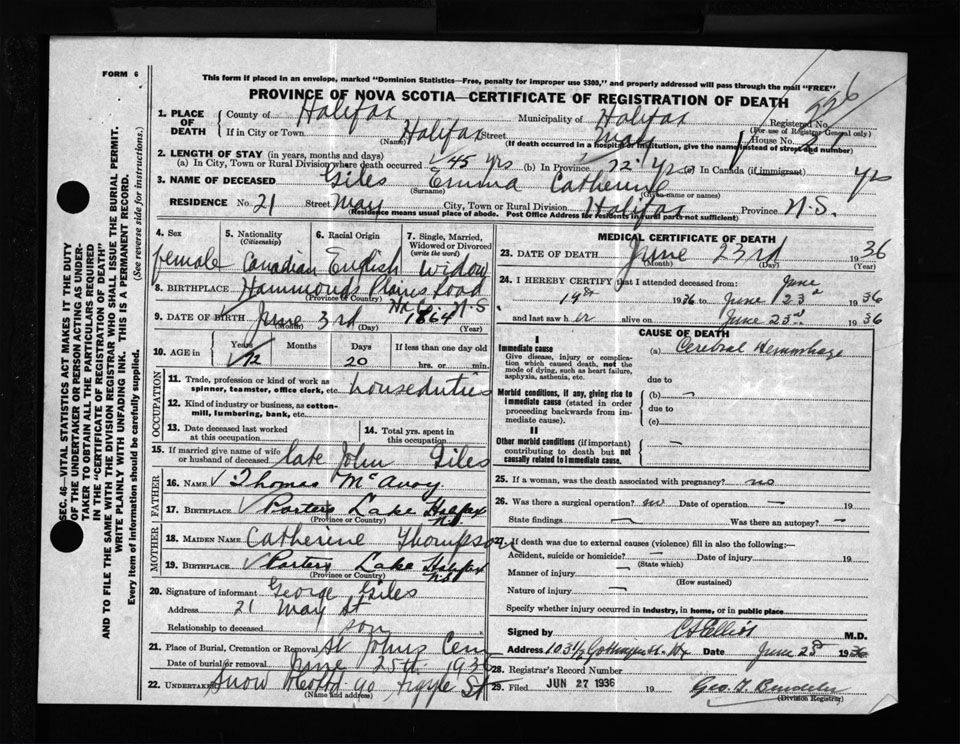 FORM 6
This form if placed in an envelope, marked "Dominion Statistics—Free, penalty for improper use $300," and properly addressed will pass through the mail "FREE"
PROVINCE OF NOVA SCOTIA—CERTIFICATE OF REGISTRATION OF DEATH
226
1. PLACE OF DEATH
County of Halifax Municipality of Halifax Registered No.
(For use of Registrar General only)
If in City or Town Halifax Street May House No. 21
(Name) (If death occurred in a hospital or institution, give the name instead of street and number)
2. LENGTH OF STAY (in years, months and days)
(a) In City, Town or Rural Division where death occurred 45 yrs (b) In Province 72 yrs (c) In Canada (if immigrant) yrs
3. NAME OF DECEASED Giles Emma Catherine
(Surname) (Given name or names)
RESIDENCE No. 21 Street May City, Town or Rural Division Halifax Province N.S.
(Residence means usual place of abode. Post Office Address for residents in rural parts not sufficient)
4. Sex 5. Nationality (Citizenship) 6. Racial Origin 7. Single, Married, Widowed or Divorced (write the word)
female Canadian English widow
8. BIRTHPLACE Hammonds Plains Road
(Province or Country) Hx Co N.S
9. DATE OF BIRTH June 3rd 1864
(Month) (Day) (Year)
10. AGE in Years Months Days If less than one day old
72 20 hrs. or min.
OCCUPATION
11. Trade, profession or kind of work as spinner, teamster, office clerk, etc. houseduties
12. Kind of industry or business, as cotton-mill, lumbering, bank, etc.
13. Date deceased last worked at this occupation 14. Total yrs. spent in this occupation
15. If married give name of wife or husband of deceased late John Giles
FATHER
16. NAME Thomas McAvoy
17. BIRTHPLACE Porters Lake Halifax
(Province or Country) N.S
MOTHER
18. MAIDEN NAME Catherine Thompson
19. BIRTHPLACE Porters Lake Halifax
(Province or Country) N.S
20. Signature of informant George Giles
Address 21 May St
Relationship to deceased son
21. Place of Burial, Cremation or Removal St Johns Cem
Date of burial or removal June 25th 1936
22. Undertaker Snow &Co Ltd 90 Argyle St
(Name and address)
MEDICAL CERTIFICATE OF DEATH
23. DATE OF DEATH June 23rd 1936
(Month) (Day) (Year)
24. I HEREBY CERTIFY that I attended deceased from: June
19th 1936 to June 23d 1936
and last saw her alive on June 23d 1936
CAUSE OF DEATH
I
Immediate cause (a) Cerebral Hemmorhage
Give disease, injury or complication which caused death, not the mode of dying, such as heart failure, asphyxia, asthenia, etc.
due to
Morbid conditions, if any, giving rise to immediate cause (stated in order proceeding backwards from immediate cause).
(b)
due to
(c)
II
Other morbid conditions (if important) contributing to death but not causally related to immediate cause.
25. If a woman, was the death associated with pregnancy? no
26. Was there a surgical operation? no Date of operation — 19
State findings — Was there an autopsy? —
27. If death was due to external causes (violence) fill in also the following:—
Accident, suicide or homicide? — Date of injury 19
(State which)
Manner of injury —
(How sustained)
Nature of injury —
Specify whether injury occurred in Industry, in home, or in public place
Signed by CS Elliot M.D.
Address 103½ Gottingen St. Hx Date June 23d 1936
28. Registrar's Record Number
29. Filed JUN 27 1936 19
(Division Registrar)
SEC. 46—VITAL STATISTICS ACT MAKES IT THE DUTY
OF THE UNDERTAKER OR PERSON ACTING AS UNDER-
TAKER TO OBTAIN ALL THE PARTICULARS REQUIRED
IN THE "CERTIFICATE OF REGISTRATION OF DEATH"
AND TO FILE THE SAME WITH THE DIVISION REGISTRAR WHO SHALL ISSUE THE BURIAL PERMIT.
WRITE PLAINLY WITH UNFADING INK. THIS IS A PERMANENT RECORD.
Every item of information should be carefully supplied. (See reverse side for instructions.)